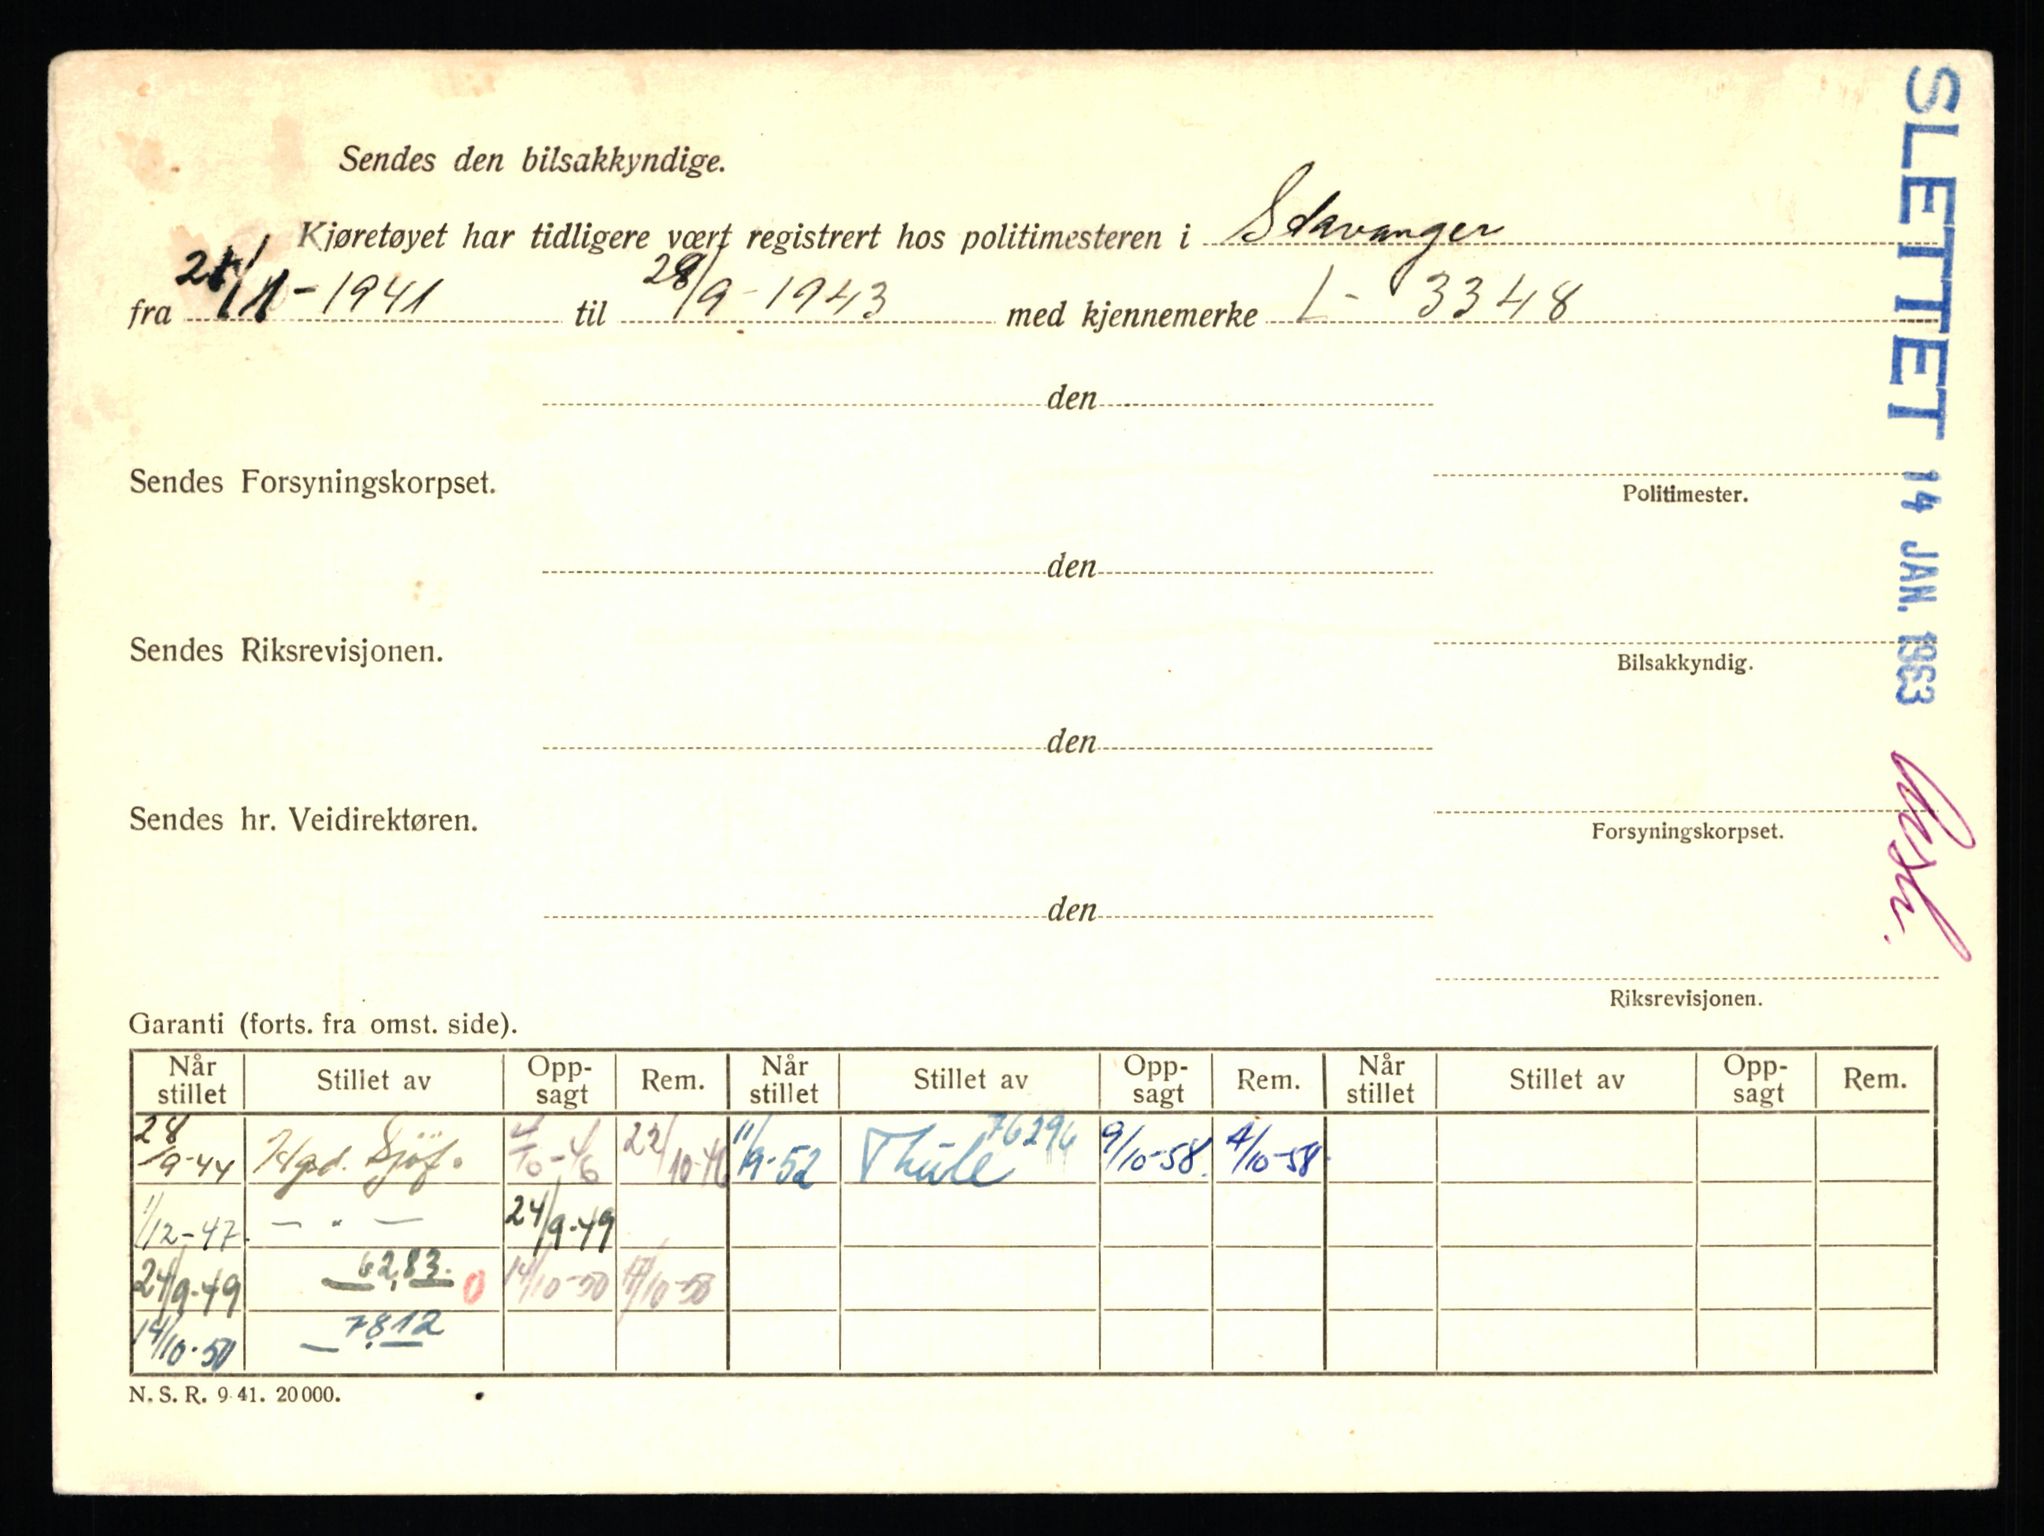 Sendes den bilsakkyndige.
Kjøretøyet har tidligere vært registrert hos politimesteren i Stavanger
fra 21/11-1941 til 28/9-1943 med kjennemerke L- 3348
den
Sendes Forsyningskorpset.
Politimester.
den
Sendes Riksrevisjonen.
Bilsakkyndig.
den
Sendes hr. Veidirektøren.
Forsyningskorpset.
den
Riksrevisjonen.
SLETTET 14 JAN. 1963
Garanti (forts. fra omst. side).
Når stillet Stillet av Opp-sagt Rem. Når stillet Stillet av Opp-sagt Rem. Når stillet Stillet av Opp-sagt Rem.
28/9-44 Sjöf. 22/10-46 11/9-52 Thule 76296 9/10-58. 4/10-58
1/12-47. — " — 24/9-49
24/9-49 6283. 0 14/10-50 17/10-50
14/10-50 7812
N. S. R. 9 41. 20000.